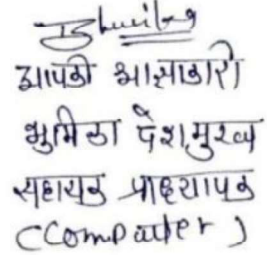 आपकी आज्ञाकारी
भुमिका देशमुख
सहायक प्राध्यापक
(Computer)